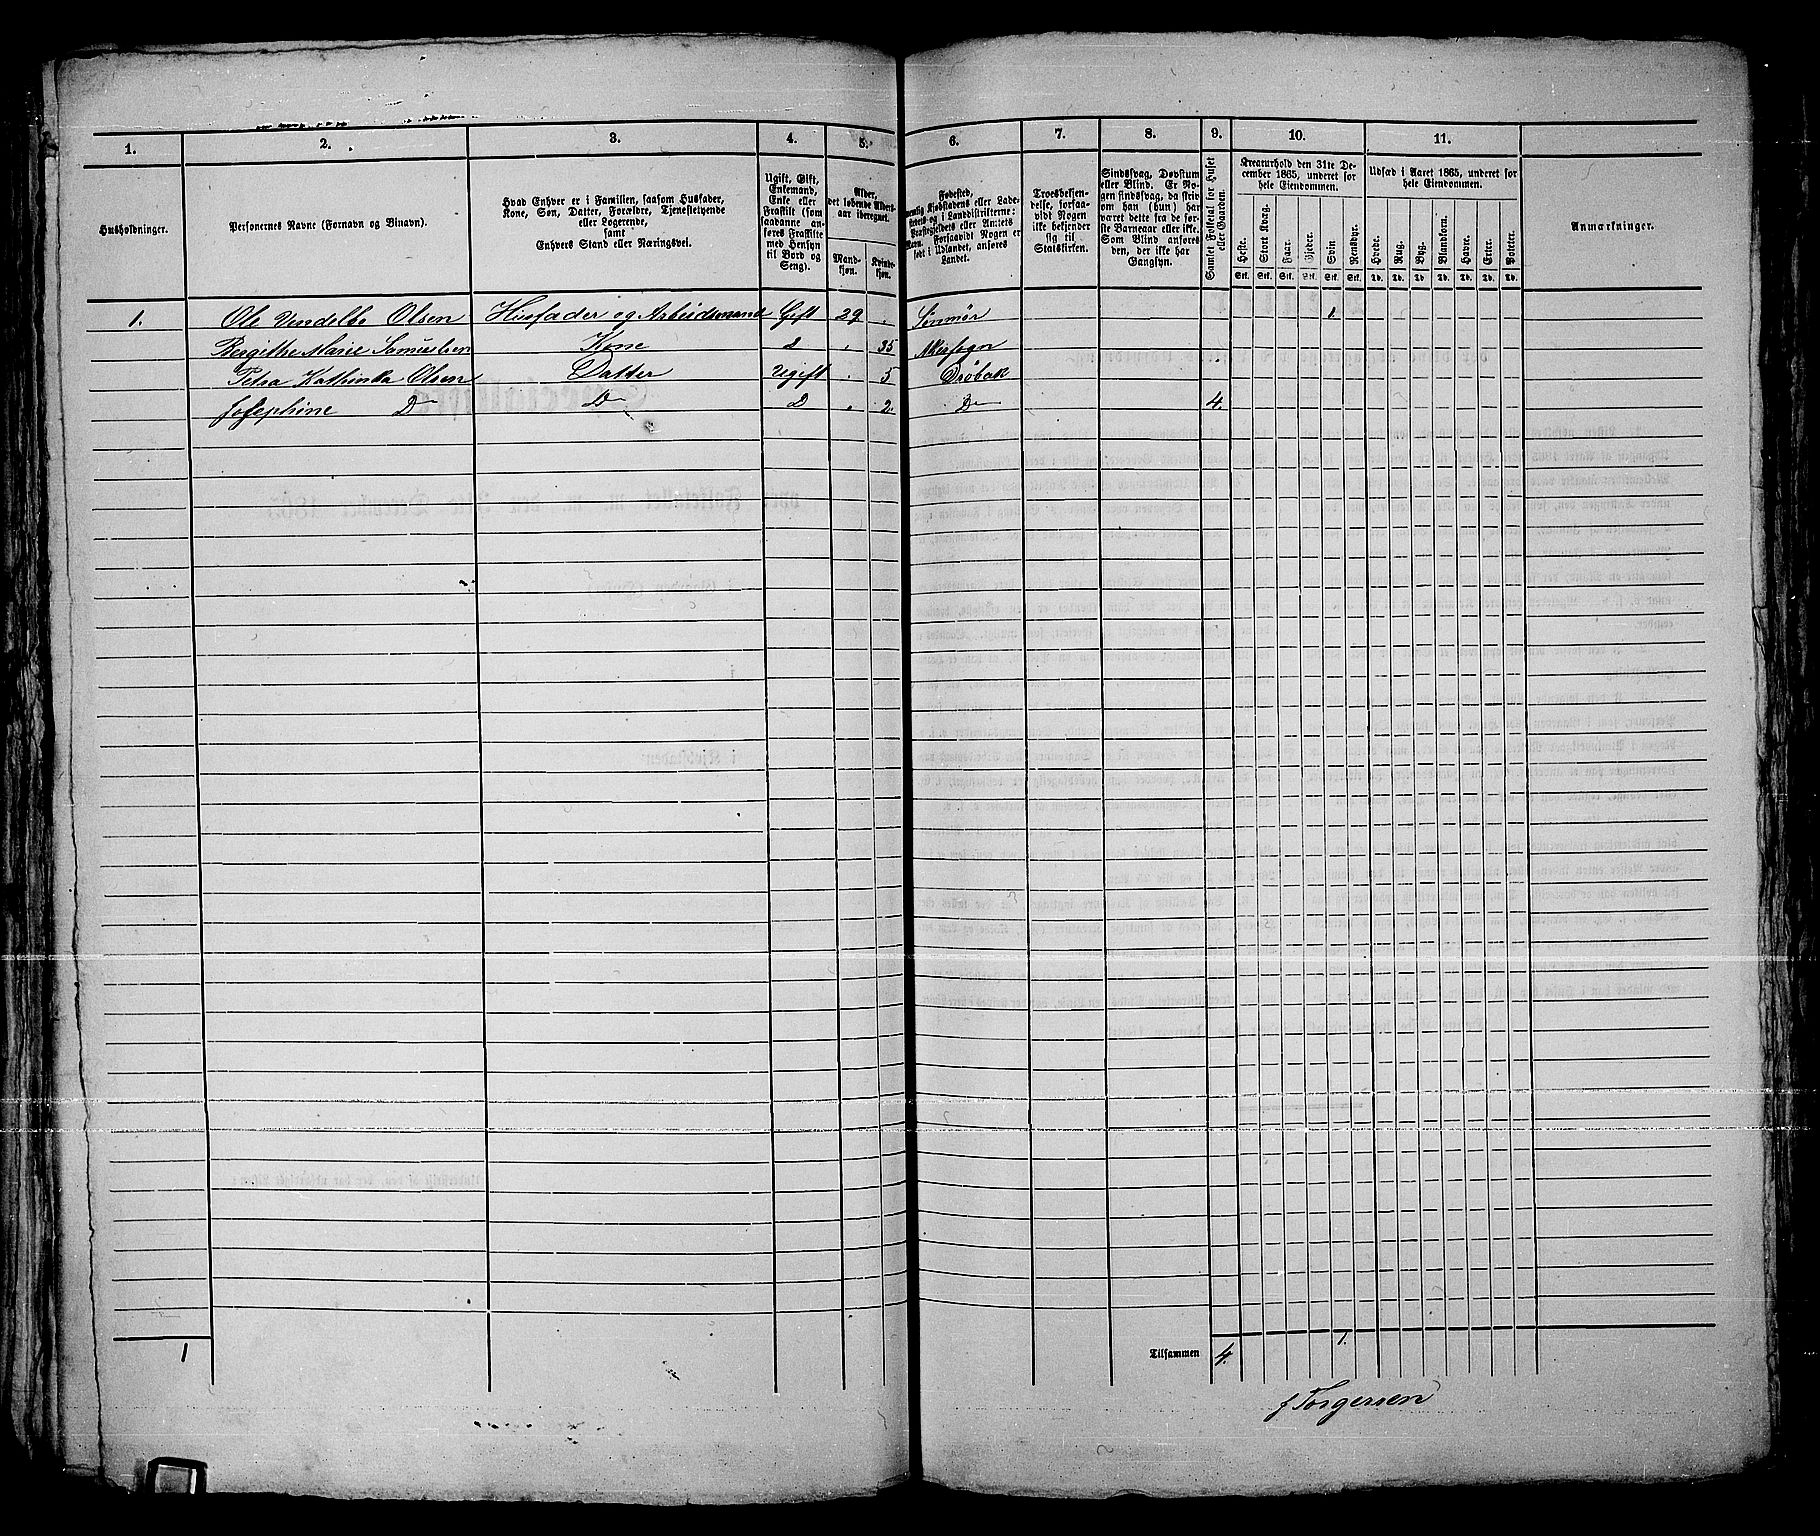 1. 2. 3. 4. 5. 6. 7. 8. 9. 10. 11.
Husholdninger.
Personernes Navne (Fornavn og Binavn).
Hvad Enhver er i Familien, saasom Husfader,
Kone, Søn, Datter, Forældre, Tjenestetyende
eller Logerende,
samt
Enhvers Stand eller Næringsvei.
Ugift, Gift,
Enkemand,
Enke eller
Fraskilt (som
saadanne anføres
Fraskilte
med Hensyn
til Bord og
Seng).
Alder,
det løbende Alders-
aar iberegnet.
Mand-
kjøn.
Kvinde-
kjøn.
Fødested,
nemlig Kjøbstadens eller Lade-
stedets og i Landdistrikterne:
Præstegjeldets eller Amtets
Navn. Forsaavidt Nogen er
født i Udlandet, anføres
Landet.
Troesbekjen-
delse, forsaa-
vidt Nogen
ikke bekjender
sig til
Statskirken.
Sindssvag, Døvstum
eller Blind. Er No-
gen sindssvag, da skriv
om han (hun) har
været dette fra de før-
ste Barneaar eller ikke.
Som Blind anføres
den, der ikke har
Gangsyn.
Samlet Folketal for Huset
eller Gaarden.
Kreaturhold den 31te De-
cember 1865, underet for
hele Eiendommen.
Heste. Stort Kvæg. Faar. Gjeder. Svin. Rensdyr.
Stk. Stk. Stk. Stk. Stk. Stk.
Udsæd i Aaret 1865, underet for
hele Eiendommen.
Hvede. Rug. Byg. Blandkorn. Havre. Erter. Poteter.
Td. Td. Td. Td. Td. Td. Td.
Anmærkninger.
1. Ole Vendelbo Olsen Husfader og Arbeidsmand Gift 29 . Sønmør 1.
Bergithe Marie Samuelsen Kone D " 35 Akersogn
Petra Kathinka Olsen Datter Ugift . 5 Drøbak
Josephine D D D " 2. D 4.
1 Tilsammen 4. 1.
f Torgersen